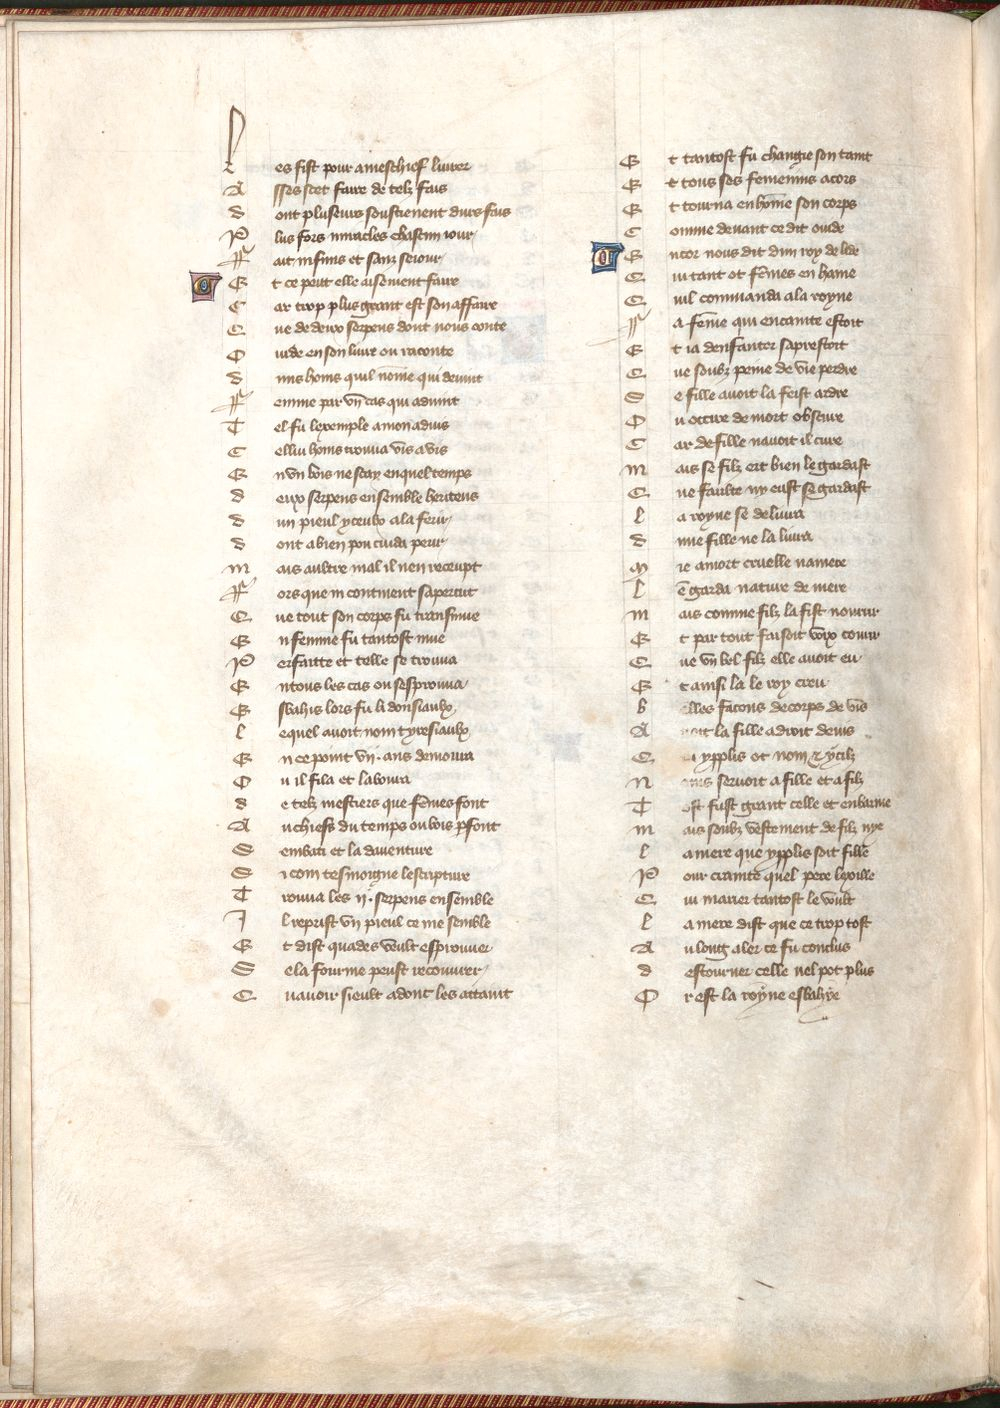 Les fist pour a meschief livrer
Asses scet faire de telz fais
dont plusieurs soustienent durs fais
Plus fors miracles chascun jour
ffait infinis et sanz sejour
Et ce peut elle aisement faire
Car trop plus grant est son affaire
Que de deux serpens dont nous conte
Ovide en son livre ou raconte
duns homs quil nome qui devint
ffemme par vn cas qui advint
Tel fu lexemple a mon advis
Cellui homs trouva vis a vis
En vn bois ne scay en quel temps
deux serpens ensemble heritens
dun pieul y ceulx ala ferir
dont a bien pou cuida perir
mais aultre mal il nen recupt
ffors que in continent sapercut
Que tout son corps fu transmue
En femme fu tantost mue
Perfaitte et telle se trouva
En tous les cas ou sesprouva
Esbahis lors fu li donsiaulx
lequel avoit nom tyresiaulx
En ce point vii. ans demoura
Ou il fila et laboura
de telz mestiers que femes font
Au chiefs du temps ou bois pfont
Sembati et la daventure
Si com tesmoigne lescripture
Trouva les ii. serpens ensemble
Il reprist vn pieul ce me semble
Et dist quades veult esprouver
Se la fourme peust recouvrer
Qu avoir sieult adont les attaint
Et tantost fu change son taint
Et tous ses femenins acors
Et tourna en home son corps
Comme devant ce dit ovide
Encor nous dit dun roy de lide
Qui tant ot femes en haine
Quil commanda a la royne
ffa feme qui encainte estoit
Et ia denfanter saprestoit
Que soubz peine de vie perdre
Se fille avoit la feist ardre
Ou occire de mort obscure
Car de fille navoit il cure
mais se filz ert bien le gardast
Que faulte ny eust se gardast
la royne se delivra
dune fille ne la livra
mie a mort cruelle n amere
le garda nature de mere
mais comme filz la fist nourir
Et par tout faisoit voix courir
Que vn bel filz elle avoit eu
Et ainsi la le roy creu
belles facons de corps de vis
Avoit la fille a droit devis
Qui ypplis ot nom et ycilz
noms servoit a fille et a filz
Tost fust grant celle et enbarnie
mais soubz vestement de filz nye
la mere que ypplis soit fille
Pour crainte quel pere lexille
Qui marier tantost le voult
la mere dist que ce trop tost
Au long aler ce fu conclus
destourner celle nel pot plus
Or est la royne esbahye